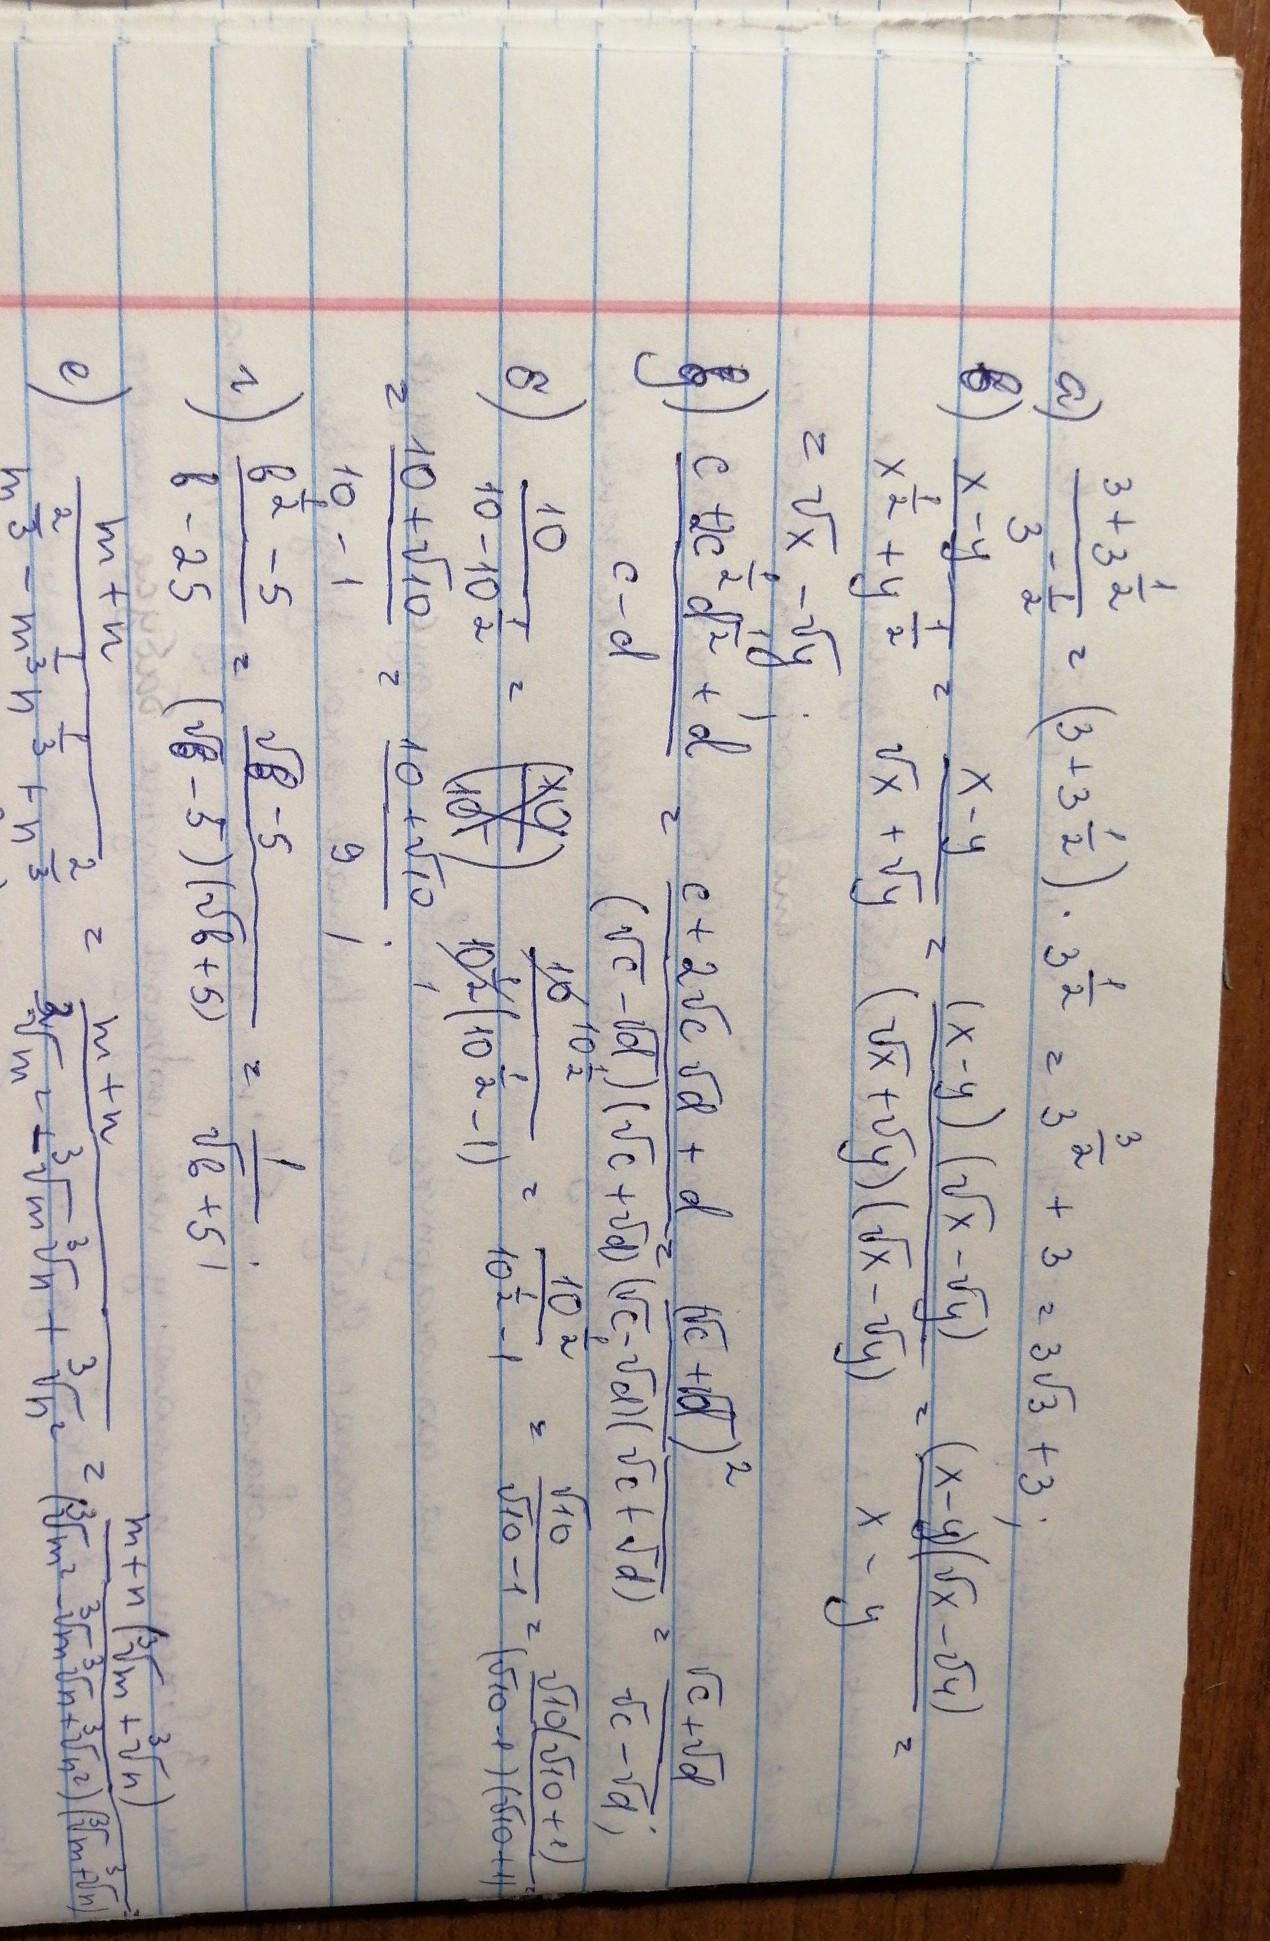 а) (3 + 3^(1/2)) / 3^(-1/2) = (3 + 3^(1/2)) · 3^(1/2) = 3^(3/2) + 3 = 3√3 + 3;
в) (x - y) / (x^(1/2) + y^(1/2)) = (x - y) / (√x + √y) = (x - y)(√x - √y) / (√x + √y)(√x - √y) = (x - y)(√x - √y) / (x - y) =
= √x - √y;
д) (c + 2c^(1/2) d^(1/2) + d) / (c - d) = (c + 2√c √d + d) / (√c - √d)(√c + √d) = (√c + √d)² / (√c - √d)(√c + √d) = (√c + √d) / (√c - √d);
б) 10 / (10 - 10^(1/2)) = 10 10^(1/2) / 10^(1/2)(10^(1/2) - 1) = 10^(1/2) / (10^(1/2) - 1) = √10 / (√10 - 1) = √10(√10 + 1) / (√10 - 1)(√10 + 1) =
= (10 + √10) / (10 - 1) = (10 + √10) / 9;
г) (b^(1/2) - 5) / (b - 25) = (√b - 5) / (√b - 5)(√b + 5) = 1 / (√b + 5);
е) (m + n) / (m^(2/3) - m^(1/3) n^(1/3) + n^(2/3)) = (m + n) / (³√m² - ³√m ³√n + ³√n²) = m + n (³√m + ³√n) / (³√m² - ³√m ³√n + ³√n²)(³√m + ³√n) =